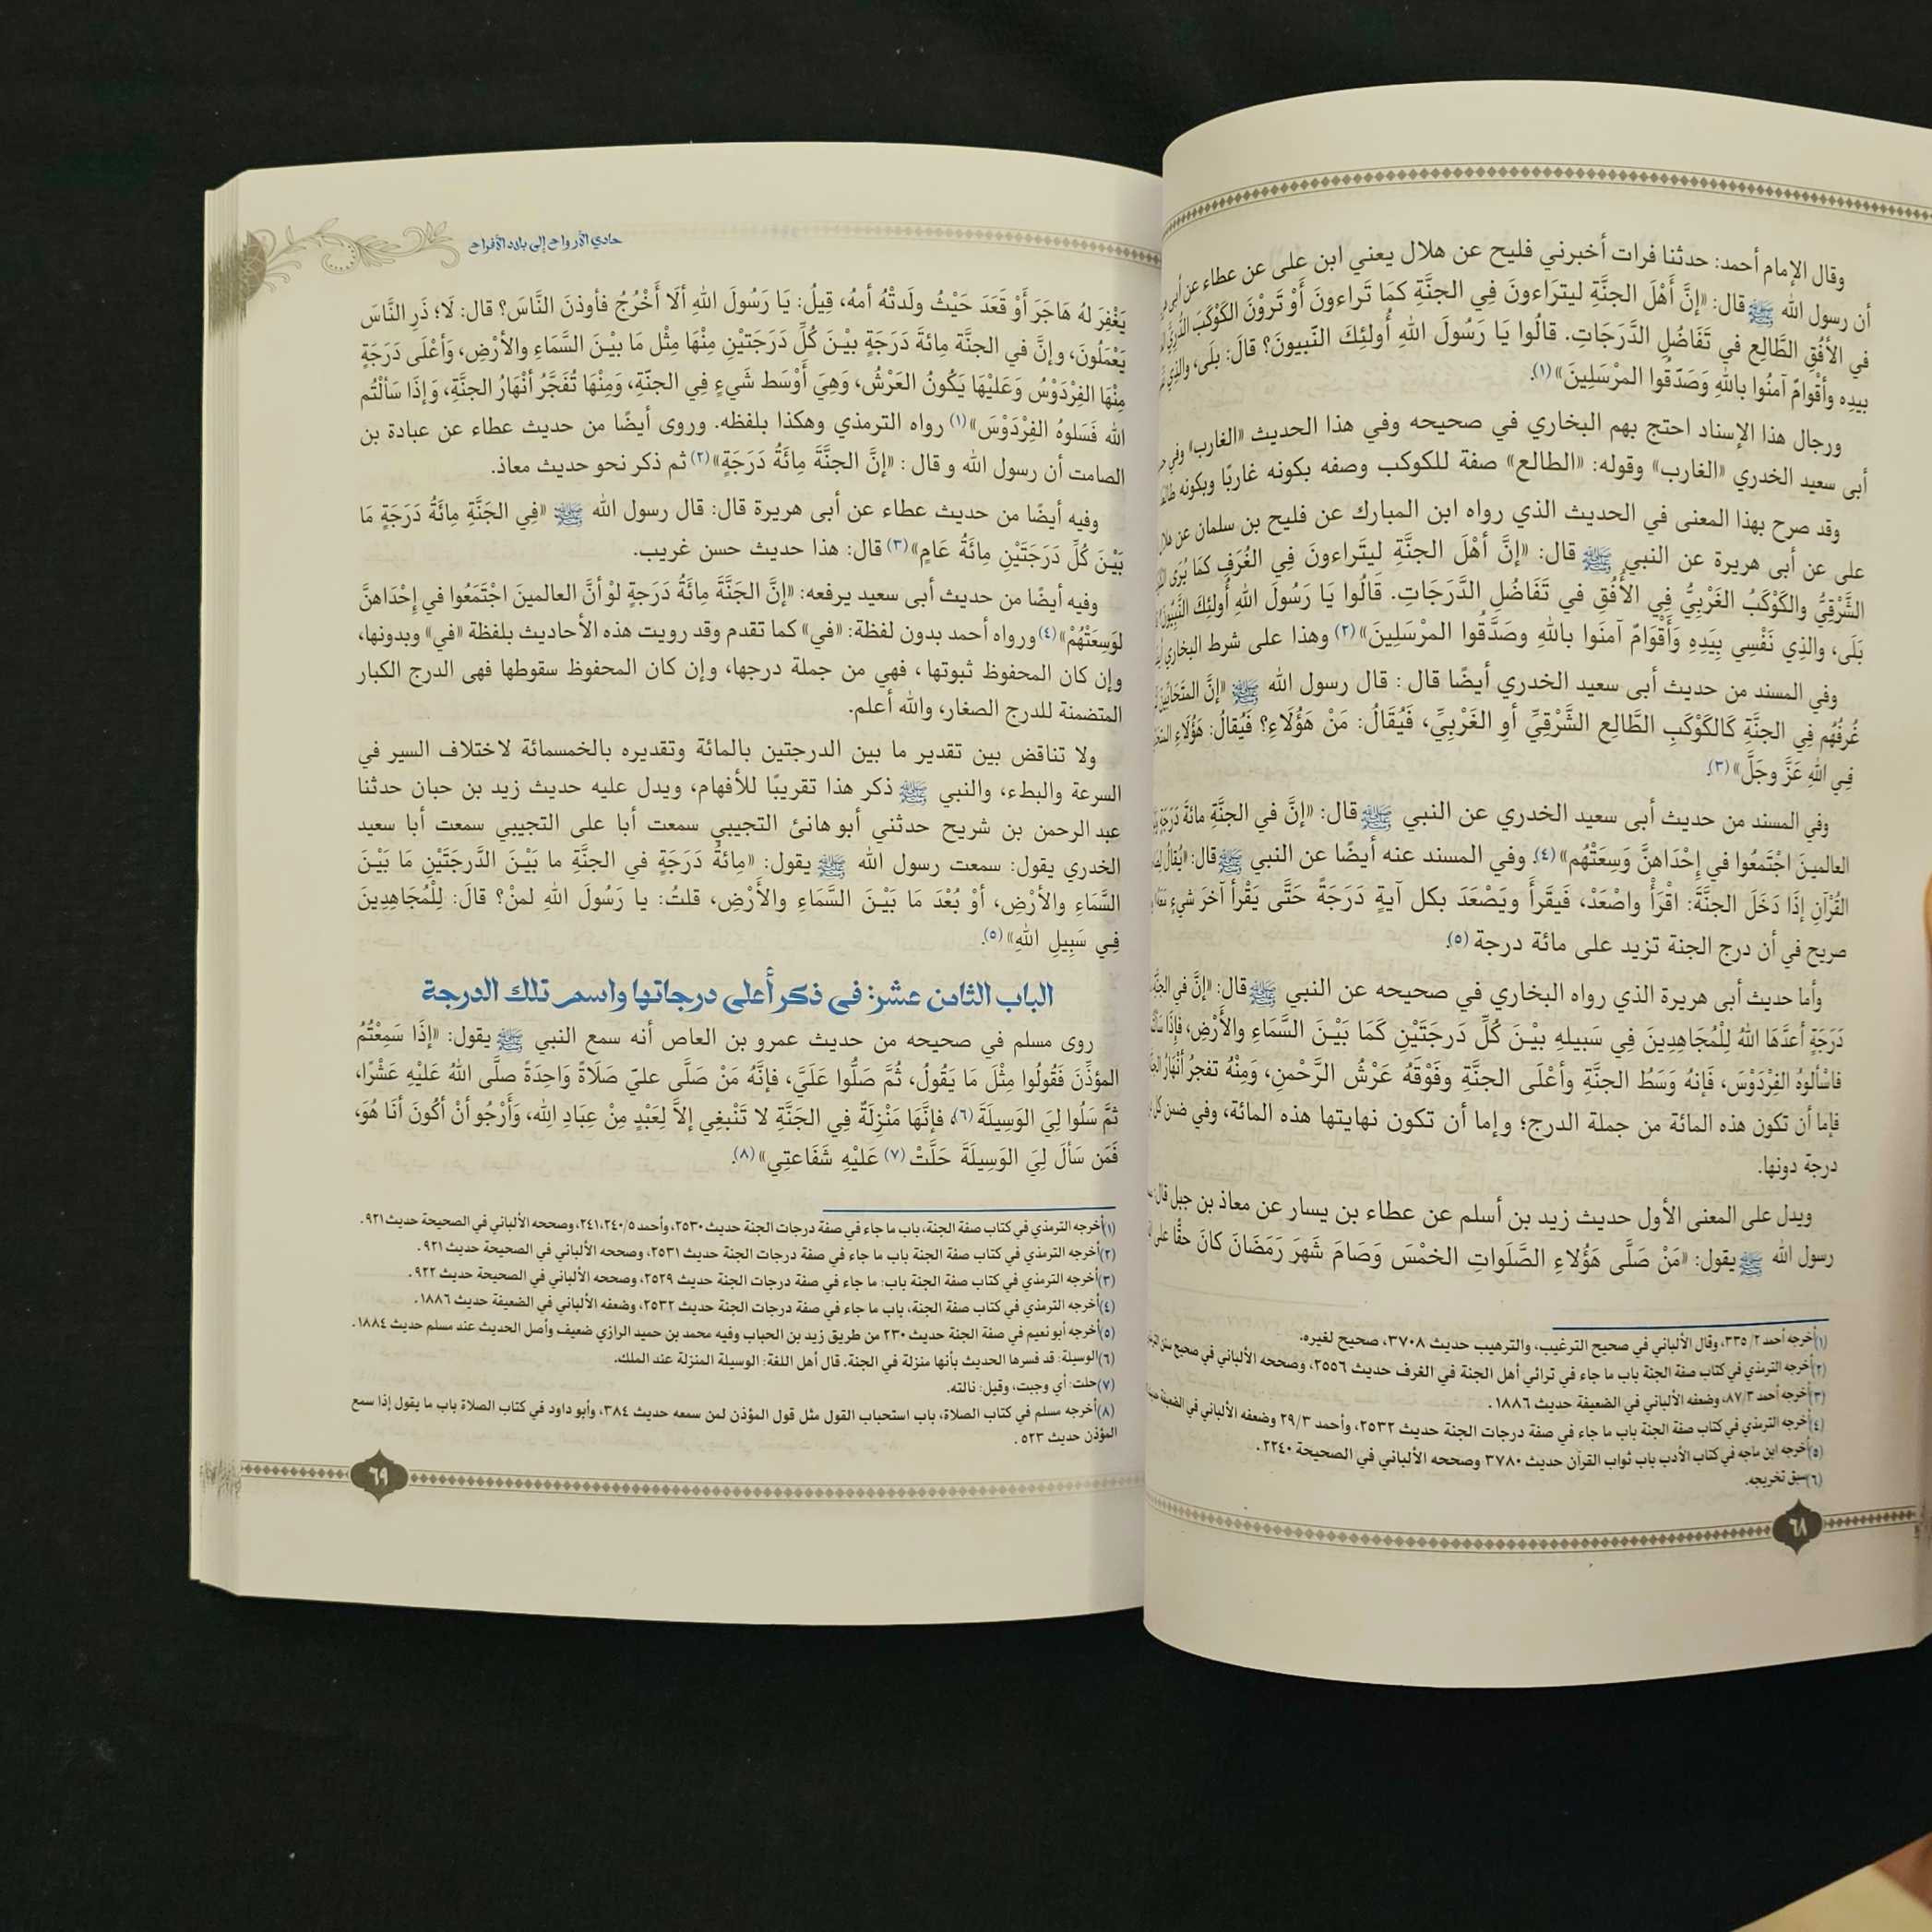 وقال الإمام أحمد: حدثنا فرات أخبرني فليح عن هلال يعني ابن على عن عطاء عن أبى
أن رسول الله ﷺ قال: «إنَّ أَهْلَ الجنَّةِ ليترَاءونَ فِي الجنَّةِ كمَا تَراءونَ أَوْ تَرَوْنَ الكَوْكَبَ
في الأُفُقِ الطَّالِعِ في تَفَاضُلِ الدَّرَجَاتِ. قالُوا يَا رَسُولَ اللهِ أُولئِكَ النّبيونَ؟ قالَ: بلَى، والذِي
بيدِه وأَقْوامٌ آمنُوا باللهِ وَصَدّقُوا المرْسَلِينَ» (١).
ورجال هذا الإسناد احتج بهم البخاري في صحيحه وفي هذا الحديث «الغارب» وفي
أبى سعيد الخدري «الغارب» وقوله: «الطالع» صفة للكوكب وصفه بكونه غاربًا وبكونه
وقد صرح بهذا المعنى في الحديث الذي رواه ابن المبارك عن فليح بن سلمان عن
على عن أبى هريرة عن النبي ﷺ قال: «إنَّ أهْلَ الجنَّةِ ليتَراءونَ فِي الغُرَفِ كمَا يُرَى
الشَّرْقِيُّ والكَوْكَبُ الغَرْبِيُّ فِي الأُفُقِ في تَفَاضُلِ الدَّرَجَاتِ. قَالُوا يَا رَسُولَ اللهِ أُولئِكَ النَّبِيُّونَ
بَلَى، والذِي نَفْسِي بِيَدِهِ وَأَقْوَامٌ آمنَوا باللهِ وصَدَّقُوا المرْسَلِينَ» (٢) وهذا على شرط البخاري
وفي المسند من حديث أبى سعيد الخدري أيضًا قال : قال رسول الله ﷺ «إنَّ المتَحَابِّينَ
غُرفُهُم فِي الجنَّةِ كَالكَوْكَبِ الطَّالِعِ الشَّرْقِيِّ أوِ الغَرْبِيِّ، فَيُقَالُ: مَنْ هَؤُلَاءِ؟ فَيُقالُ: هَؤُلَاءِ
فِي اللهِ عَزَّ وجَلَّ» (٣).
وفي المسند من حديث أبى سعيد الخدري عن النبي ﷺ قال: «إنَّ في الجنَّةِ مائَةَ دَرَجَةٍ
العالمينَ اجْتَمَعُوا في إحْدَاهنَّ وَسِعَتْهُم» (٤). وفي المسند عنه أيضًا عن النبي ﷺ قال: «يُقالُ
القُرْآنِ إذَا دَخَلَ الجنَّةَ: اقْرَأْ واصْعَدْ، فَيقَرأَ ويَصْعَدَ بكل آيةٍ دَرَجَةً حَتَّى يَقْرأَ آخرَ شَيءٍ
صريح في أن درج الجنة تزيد على مائة درجة (٥).
وأما حديث أبى هريرة الذي رواه البخاري في صحيحه عن النبي ﷺ قال: «إنَّ في
دَرَجَةٍ أعدَّهَا اللهُ لِلْمُجَاهِدِينَ فِي سَبيلهِ بيْـنَ كُلِّ دَرَجَتَيْنِ كَمَا بَيْـنَ السَّمَاءِ والأرْضِ، فإذَا
فاسْألوهُ الفِرْدَوْسَ، فَإنهُ وَسَطُ الجنَّةِ وأعْلَى الجنَّةِ وفَوْقَهُ عَرْشُ الرَّحْمنِ، وَمِنْهُ تفجرُ أَنْهَارُ
فإما أن تكون هذه المائة من جملة الدرج؛ وإما أن تكون نهايتها هذه المائة، وفي ضمن كل
درجة دونها.
ويدل على المعنى الأول حديث زيد بن أسلم عن عطاء بن يسار عن معاذ بن جبل قال:
رسول الله ﷺ يقول: «مَنْ صَلَّى هَؤُلاءِ الصَّلَواتِ الخمْسَ وَصَامَ شَهْرَ رَمَضَانَ كانَ حقًّا
(١)أخرجه أحمد ٣٣٥/٢، وقال الألباني في صحيح الترغيب، والترهيب حديث ٣٧٠٨، صحيح لغيره.
(٢)أخرجه الترمذي في كتاب صفة الجنة باب ما جاء في ترائي أهل الجنة في الغرف حديث ٢٥٥٦، وصححه الألباني في صحيح سنن
(٣)أخرجه أحمد ٨٧/٣، وضعفه الألباني في الضعيفة حديث ١٨٨٦ .
(٤)أخرجه الترمذي في كتاب صفة الجنة باب ما جاء في صفة درجات الجنة حديث ٢٥٣٢، وأحمد ٢٩/٣ وضعفه الألباني في الضعيفة
(٥)أخرجه ابن ماجه في كتاب الأدب باب ثواب القرآن حديث ٣٧٨٠ وصححه الألباني في الصحيحة ٢٢٤٠.
(٦)سبق تخريجه.
٦٨
حادي الأرواح إلى بلاد الأفراح
يَغْفِرَ لهُ هَاجَرَ أَوْ قَعَدَ حَيْثُ ولَدتْهُ أمهُ، قِيلُ: يَا رَسُولَ اللهِ ألَا أَخْرُجُ فأوذنَ النَّاسَ؟ قال: لَا؛ ذَرِ النَّاسَ
يَعْمَلُونَ، وإنَّ في الجنَّة مِائةَ دَرَجَةٍ بيْـنَ كُلِّ دَرَجَتيْنِ مِنْهَا مِثْل مَا بيْـنَ السَّمَاءِ والأرْضِ، وَأعْلَى دَرَجَةٍ
مِنْهَا الفِرْدَوْسُ وَعَليْهَا يَكُونُ العَرْشُ، وَهِيَ أَوْسَط شَيءٍ فِي الجنّةِ، وَمِنْهَا تُفَجَّرُ أنْهَارُ الجنَّةِ، وَإذَا سَألْتُم
الله فَسَلوهُ الفِرْدَوْسَ» (١) رواه الترمذي وهكذا بلفظه. وروى أيضًا من حديث عطاء عن عبادة بن
الصامت أن رسول الله و قال : «إنَّ الجنَّةَ مِائَةُ دَرَجَةٍ» (٢) ثم ذكر نحو حديث معاذ.
وفيه أيضًا من حديث عطاء عن أبى هريرة قال: قال رسول الله ﷺ «فِي الجَنَّةِ مِائَةُ دَرَجَةٍ مَا
بَيْـنَ كُلِّ دَرَجَتَيْنِ مِائَةُ عَامٍ» (٣) قال: هذا حديث حسن غريب.
وفيه أيضًا من حديث أبى سعيد يرفعه: «إنَّ الجَنَّةَ مِائَةُ دَرَجَةٍ لوْ أنَّ العالمينَ اجْتَمَعُوا في إحْدَاهنَّ
لوَسِعَتْهُمْ» (٤) ورواه أحمد بدون لفظة: «في» كما تقدم وقد رويت هذه الأحاديث بلفظة «في» وبدونها،
وإن كان المحفوظ ثبوتها ، فهي من جملة درجها، وإن كان المحفوظ سقوطها فهى الدرج الكبار
المتضمنة للدرج الصغار، والله أعلم.
ولا تناقض بين تقدير ما بين الدرجتين بالمائة وتقديره بالخمسمائة لاختلاف السير في
السرعة والبطء، والنبي ﷺ ذكر هذا تقريبًا للأفهام، ويدل عليه حديث زيد بن حبان حدثنا
عبد الرحمن بن شريح حدثني أبو هانئ التجيبي سمعت أبا على التجيبي سمعت أبا سعيد
الخدري يقول: سمعت رسول الله ﷺ يقول: «مِائَةُ دَرَجَةٍ في الجنَّةِ ما بَيْـنَ الدَّرجَتَيْنِ مَا بَيْـنَ
السَّمَاءِ والأرْضِ، أوْ بُعْدَ مَا بَيْـنَ السَّمَاءِ والأَرْضِ، قلتُ: يا رَسُولَ اللهِ لمنْ؟ قالَ: لِلْمُجَاهِدِينَ
فِي سَبِيلِ اللهِ» (٥).
الباب الثامن عشر: في ذكر أعلى درجاتها واسم تلك الدرجة
روى مسلم في صحيحه من حديث عمرو بن العاص أنه سمع النبي ﷺ يقول: «إذَا سَمِعْتُمُ
المؤذِّنَ فَقُولُوا مِثْلَ مَا يَقُولُ، ثُمَّ صَلُّوا عَلَيَّ، فإنَّهُ مَنْ صَلَّى عليّ صَلَاةً وَاحِدَةً صلَّى اللهُ عَلَيْهِ عَشْرًا،
ثمَّ سَلُوا لِيَ الوَسِيلَةَ (٦)، فإنَّهَا مَنْزِلَةٌ فِي الجَنَّةِ لا تَنْبغِي إلاَّ لِعَبْدٍ مِنْ عِبَادِ اللهِ، وَأَرْجُو أنْ أكُونَ أنَا هُوَ،
فَمَن سَألَ لِيَ الوَسِيلَةَ حَلَّتْ (٧) عَلَيْهِ شَفَاعتِي» (٨).
(١)أخرجه الترمذي في كتاب صفة الجنة، باب ما جاء في صفة درجات الجنة حديث ٢٥٣٠، وأحمد ٢٤١،٢٤٠/٥، وصححه الألباني في الصحيحة حديث ٩٢١ .
(٢)أخرجه الترمذي في كتاب صفة الجنة باب ما جاء في صفة درجات الجنة حديث ٢٥٣١، وصححه الألباني في الصحيحة حديث ٩٢١ .
(٣)أخرجه الترمذي في كتاب صفة الجنة باب: ما جاء في صفة درجات الجنة حديث ٢٥٢٩، وصححه الألباني في الصحيحة حديث ٩٢٢ .
(٤)أخرجه الترمذي في كتاب صفة الجنة، باب ما جاء في صفة درجات الجنة حديث ٢٥٣٢، وضعفه الألباني في الضعيفة حديث ١٨٨٦ .
(٥)أخرجه أبو نعيم في صفة الجنة حديث ٢٣٠ من طريق زيد بن الحباب وفيه محمد بن حميد الرازي ضعيف وأصل الحديث عند مسلم حديث ١٨٨٤ .
(٦)الوسيلة: قد فسرها الحديث بأنها منزلة في الجنة. قال أهل اللغة: الوسيلة المنزلة عند الملك.
(٧)حلت: أي وجبت، وقيل: نالته.
(٨)أخرجه مسلم في كتاب الصلاة، باب استحباب القول مثل قول المؤذن لمن سمعه حديث ٣٨٤، وأبو داود في كتاب الصلاة باب ما يقول إذا سمع
المؤذن حديث ٥٢٣ .
٦٩